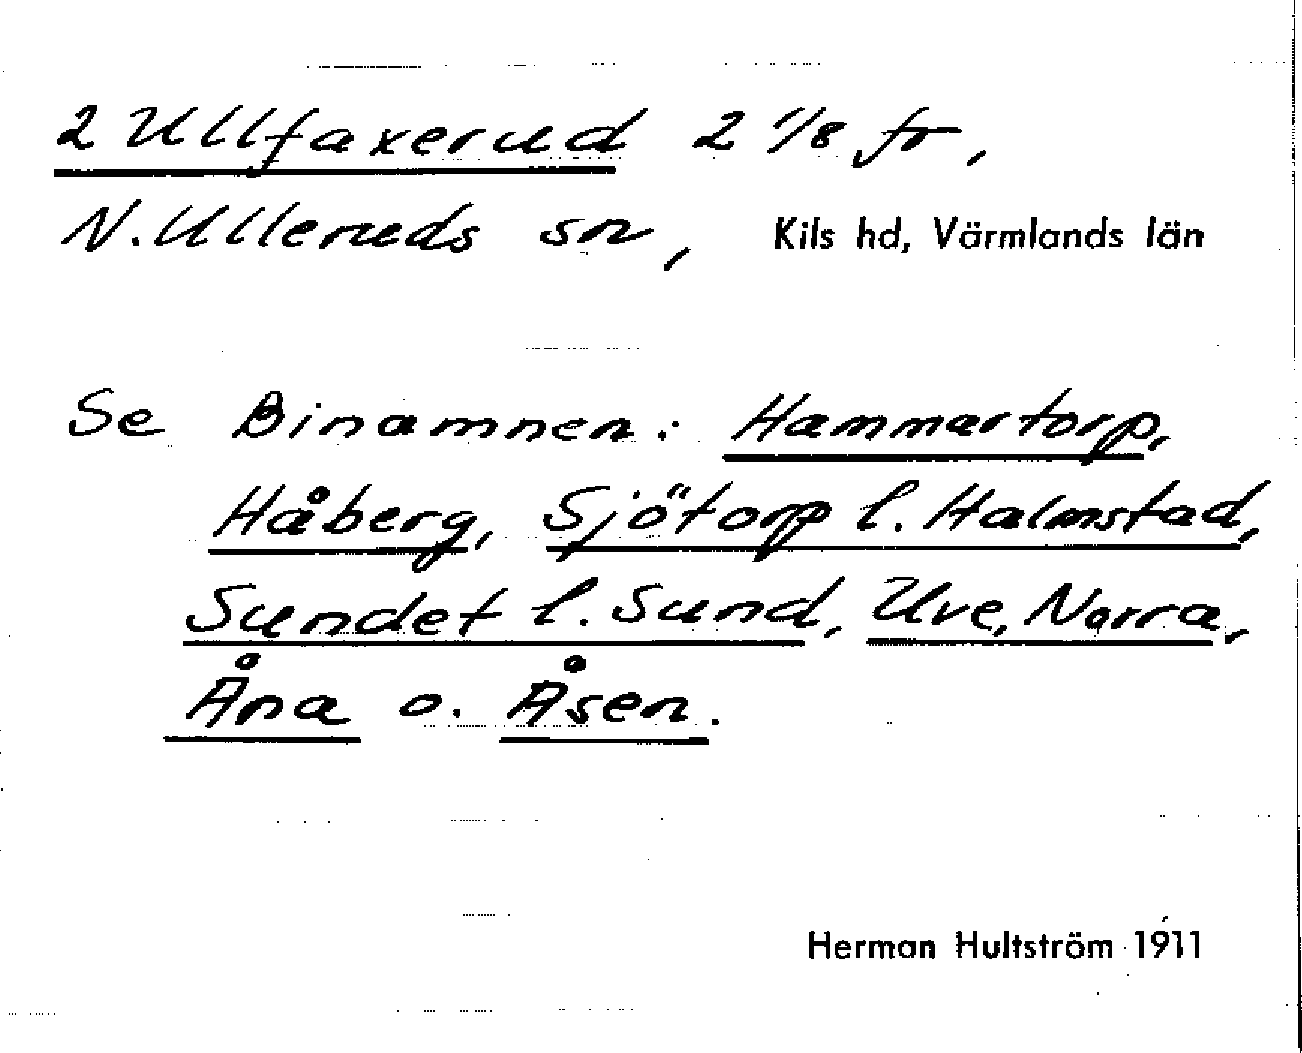 2 Ullfaxerud 2 1/8 fr,
N. Ulleruds sn, Kils hd, Värmlands län
Se Binamnen: Hammartorp,
Håberg, Sjötorp l. Halmstad,
Sundet l. Sund, Uve, Norra,
Åna o. Åsen.
Herman Hultström 1911